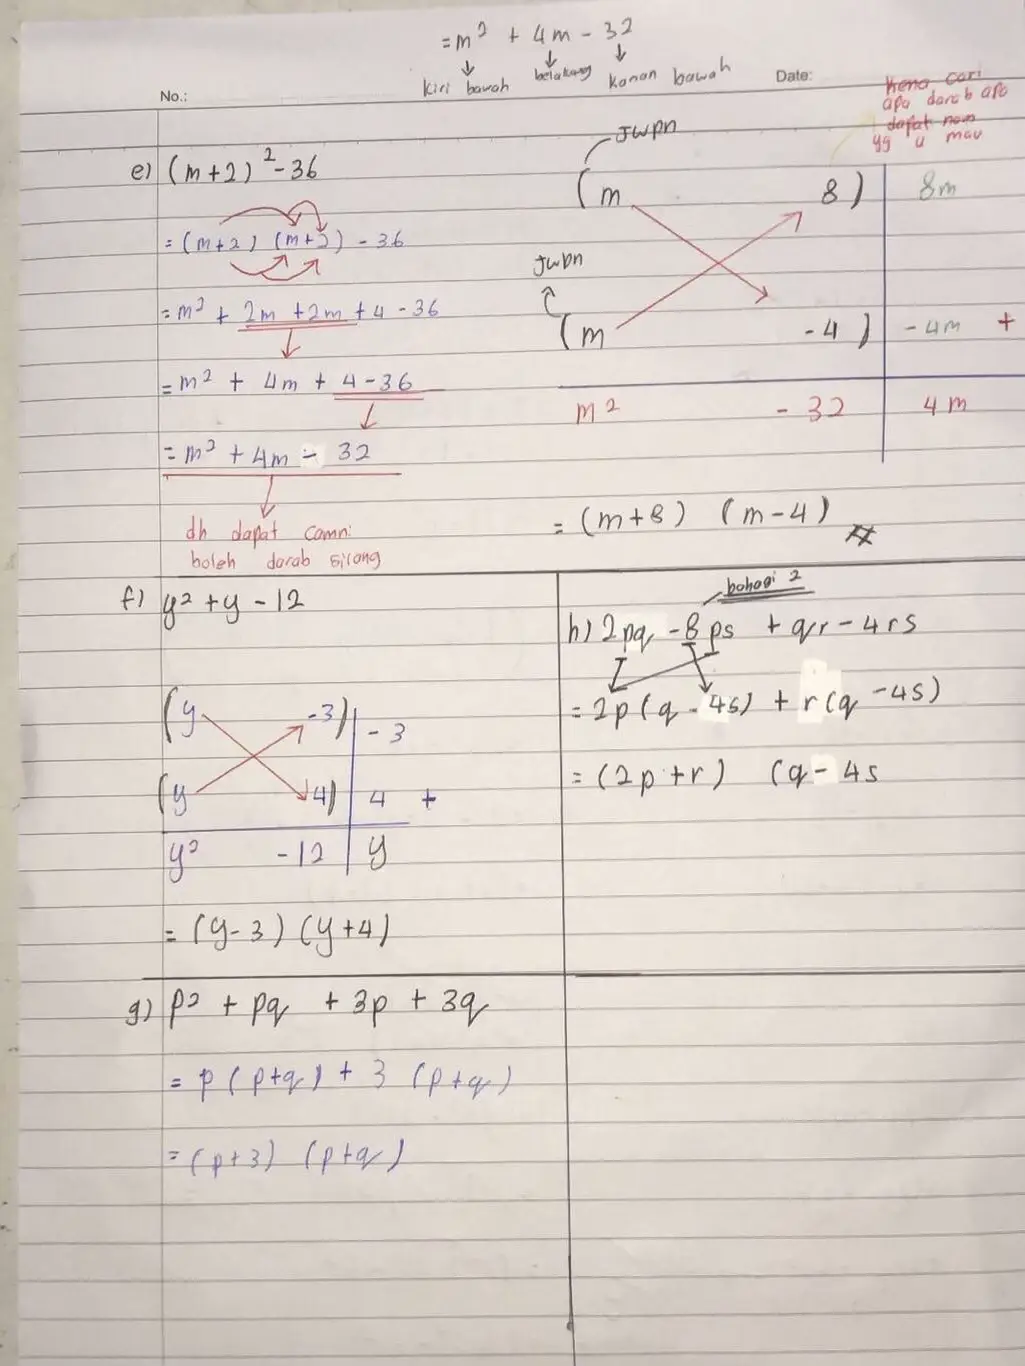 = m² + 4m - 32
kiri bawah belakang kanan bawah
No.:
Date:
kena cari
apa darab apa
dapat nom
yg u mau
e) (m+2)² - 36
= (m+2) (m+2) - 36
= m² + 2m + 2m + 4 - 36
= m² + 4m + 4 - 36
= m² + 4m - 32
dh dapat camni
boleh darab silang
Jwpn
(m 8) 8m
Jwpn
(m -4) -4m +
m² - 32 4m
= (m+8) (m-4)
f) y² + y - 12
(y -3) -3
(y 4) 4 +
y² -12 y
= (y-3) (y+4)
g) p² + pq + 3p + 3q
= p (p+q) + 3 (p+q)
= (p+3) (p+q)
bahagi 2
h) 2pq - 8ps + qr - 4rs
= 2p (q - 4s) + r (q - 4s)
= (2p + r) (q - 4s